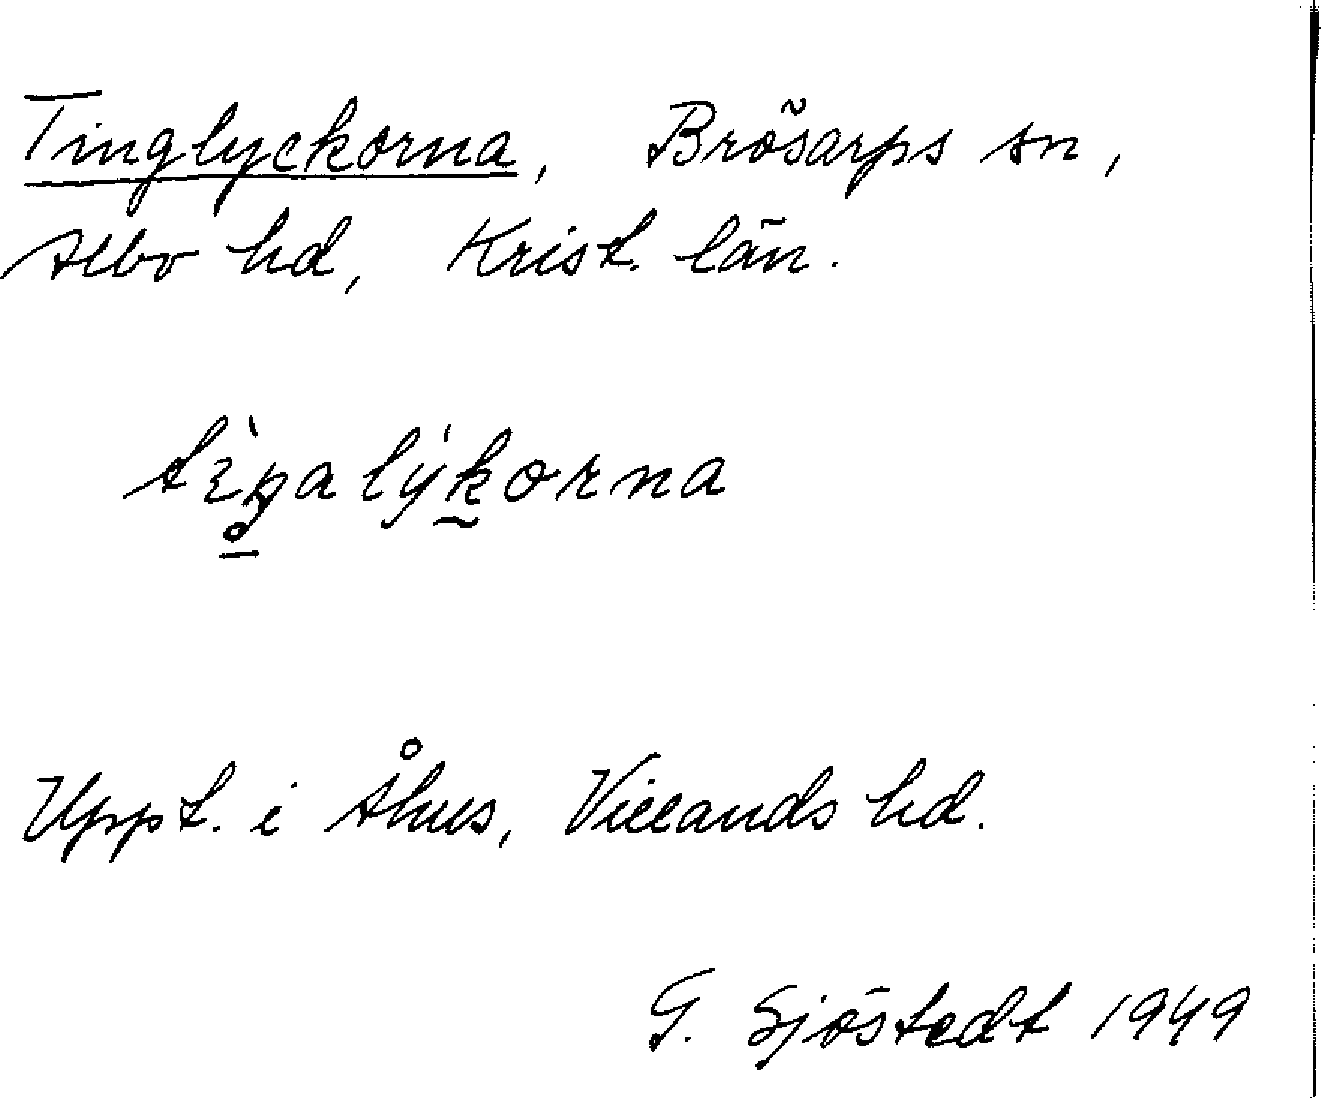 Tinglyckorna, Brösarps sn,
Albo hd, Krist. län.
tɛ̀ŋalýkorna
Uppt. i Åhus, Villands hd.
G. Sjöstedt 1949